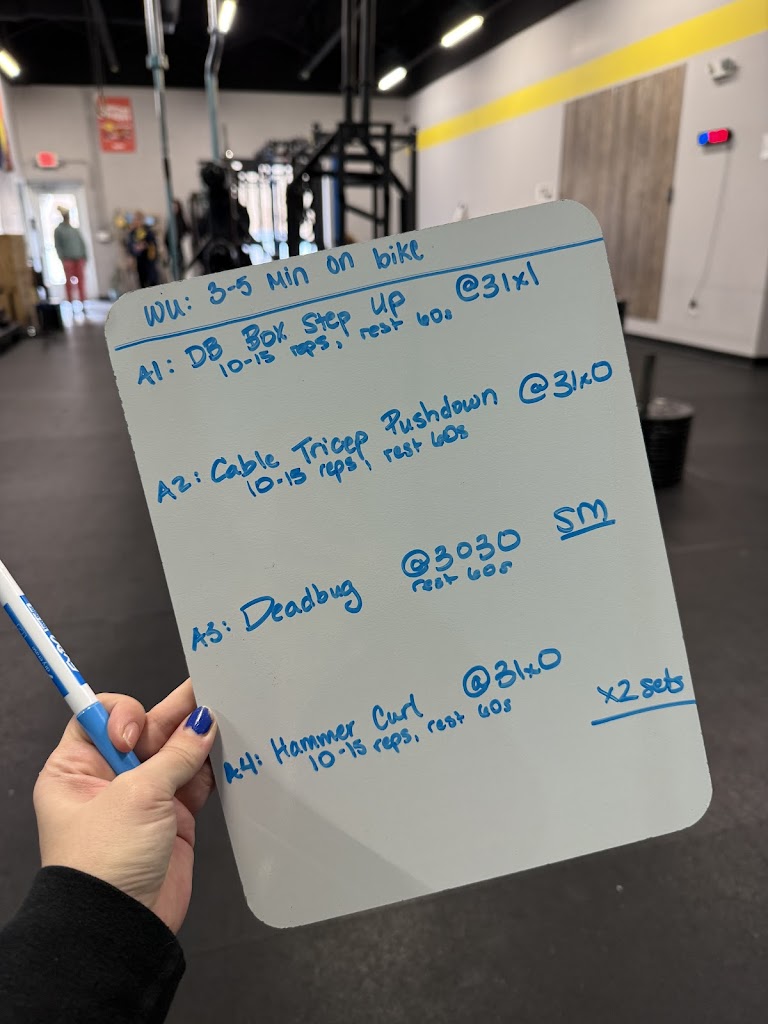 WU: 3-5 Min on bike
A1: DB Box Step Up @31x1
10-15 reps, rest 60s
A2: Cable Tricep Pushdown @31x0
10-15 reps, rest 60s
SM
A3: Deadbug @3030
rest 60s
A4: Hammer Curl @31x0
10-15 reps, rest 60s
x2 sets
EXPO